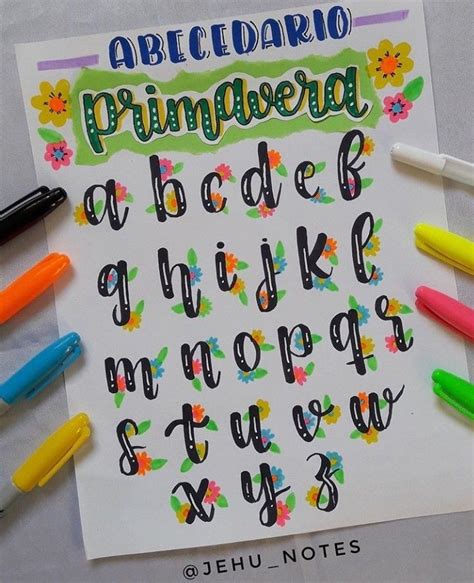 ABECEDARIO
primavera
a b c d e f
g h i j k l
m n o p q r
s t u v w
x y z
@JEHU_NOTES